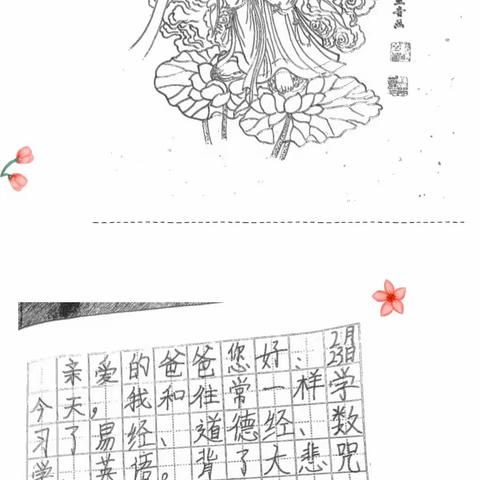 2月
23日
亲爱的爸爸您好：
今天，我和往常一样学
习了易经、道德经、数
学、英语。背了大悲咒